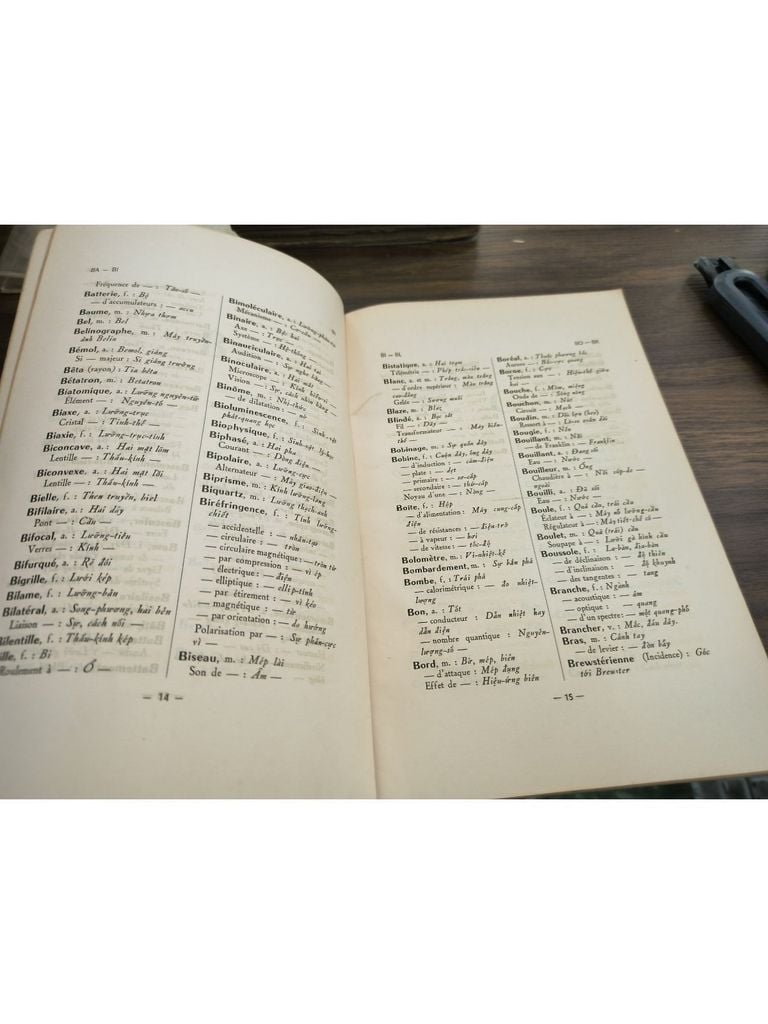 BA — BI
Fréquence de — : Tần-số —
Batterie, f. : Bộ
— d'accumulateurs : — accu
Baume, m. : Nhựa thơm
Bel, m. : Bel
Belinographe, m. : Máy truyền-
ảnh Belin
Bémol, a. : Bemol, giáng
Si — majeur : Si giáng trưởng
Bêta (rayon) : Tia bêta
Bétatron, m. : Betatron
Biatomique, a. : Lưỡng nguyên-tử
Elément — : Nguyên-tố —
Biaxe, a. : Lưỡng-trục
Cristal — : Tinh-thể —
Biaxie, f. : Lưỡng-trục-tính
Biconcave, a. : Hai mặt lõm
Lentille — : Thấu-kính —
Biconvexe, a. : Hai mặt lồi
Lentille — : Thấu-kính —
Bielle, f. : Then truyền, biel
Bifilaire, a. : Hai dây
Pont — : Cầu —
Bifocal, a. : Lưỡng-tiêu
Verres — : Kính —
Bifurqué, a. : Rẽ đôi
Bigrille, f. : Lưới kép
Bilame, f. : Lưỡng-bản
Bilatéral, a. : Song-phương, hai bên
Liaison — : Sự, cách nối —
Bilentille, f. : Thấu-kính kép
ille, f. : Bi
Roulement à — : Ổ —
Bimoléculaire, a. : Lưỡng-phân-tử
Mécanisme — : Cơ-cấu —
Binaire, a. : Bậc hai
Axe — : Trục —
Système — : Hệ-thống —
Binauriculaire, a. : Hai tai
Audition — : Sự nghe bằng —
Binoculaire, a. : Hai mắt
Microscope — : Kính hiển-vi —
Vision — : Sự, cách nhìn bằng —
Binôme, m. : Nhị-thức
— de dilatation : — nở
Bioluminescence, f. : Sinh-vật
phát-quang học
Biophysique, f. : Sinh-vật lý-học
Biphasé, a. : Hai pha
Courant — : Dòng điện —
Bipolaire, a. : Lưỡng-cực
Alternateur — : Máy giao-điện —
Biprisme, m. : Kính lưỡng-lăng
Biquartz, m. : Lưỡng thạch-anh
Biréfringence, f. : Tính lưỡng-
chiết
— accidentelle : — nhân-tạo
— circulaire : — tròn
— circulaire magnétique : — tròn từ
— par compression : — vì ép
— électrique : — điện
— elliptique : — elip-tính
— par étirement : — vì kéo
— magnétique : — từ
— par orientation : — do hướng
Polarisation par — : Sự phân-cực
vì —
Biseau, m. : Mép lài
Son de — : Âm —
— 14 —
BI — BL
Bistatique, a. : Hai trạm
Télémétrie — : Phép trắc-viễn —
Blanc, a. et m. : Trắng, màu trắng
— d'ordre supérieur : Màu trắng
cao-đẳng
Gelée — : Sương muối
Blaze, m. : Blaz
Blindé, a. : Bọc sắt
Fil — : Dây —
Transformateur — : Máy biến-
thế —
Bobinage, m. : Sự quấn dây
Bobine, f. : Cuộn dây, ống dây
— d'induction : — cảm-điện
— plate : — dẹt
— primaire : — sơ-cấp
— secondaire : — thứ-cấp
Noyau d'une — : Nòng —
Boîte, f. : Hộp
— d'alimentation : Máy cung-cấp
điện
— de résistances : — điện-trở
— à vapeur : — hơi
— de vitesse : — tốc-độ
Bolomètre, m. : Vi-nhiệt-kế
Bombardement, m. : Sự bắn phá
Bombe, f. : Trái phá
— calorimétrique : — đo nhiệt-
lượng
Bon, a. : Tốt
— conducteur : Dẫn nhiệt hay
dẫn điện
— nombre quantique : Nguyên-
lượng-số —
Bord, m. : Bờ, mép, biên
— d'attaque : Mép đụng
Effet de — : Hiệu-ứng biên
BO — BR
Boréal, a. : Thuộc phương bắc
Aurore — : Bắc-cực quang
Borne, f. : Cực
Tension aux — : Hiệu-thế giữa
hai —
Bouche, f. : Mồm, miệng
Onde de — : Sóng súng
Bouchon, m. : Nút
Circuit — : Mạch —
Boudin, m. : Dồi lợn (heo)
Ressort à — :
Bougie, f. : Nến
Bouillant, m. : Nồi
— de Franklin : — Franklin
Bouillant, a. : Đang sôi
Eau — : Nước —
Bouilleur, m. : Ống
Chaudière à — : Nồi súp-de —
ngoài
Bouilli, a. : Đã sôi
Eau — : Nước —
Boule, f. : Quả cầu, trái cầu
Éclateur à — : Máy nổ lưỡng-cầu
Régulateur à — : Máy tiết-chế có —
Boulet, m. : Quả (trái) cầu
Soupape à — : Lưỡi gà hình cầu
Boussole, f. : La-bàn, địa-bàn
— de déclinaison : — độ thiên
— d'inclinaison : — độ khuynh
— des tangentes : — tang
Branche, f. : Ngành
— acoustique : — âm
— optique : — quang
— d'un spectre: — một quang-phổ
Brancher, v. : Mắc, đấu dây.
Bras, m. : Cánh tay
— de levier : — đòn bẩy
Brewstérienne (Incidence) : Góc
tới Brewster
— 15 —